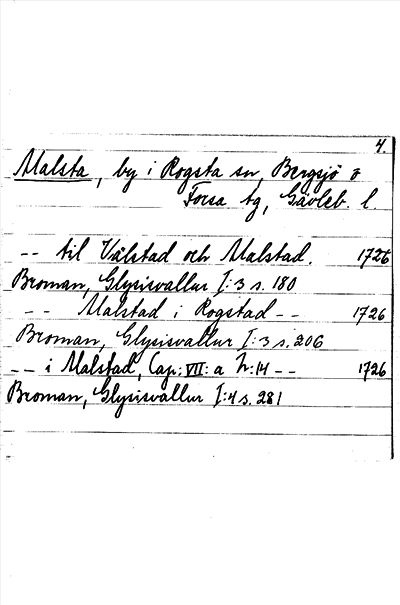 4.
Malsta, by i Rogsta sn, Bergsjö o
Forsa tg, Gävleb. l.
-- til Vålstad och Malstad. 1726
Broman, Glysisvallur I:3 s. 180
-- Malstad i Rogstad -- 1726
Broman, Glysisvallur I:3 s. 206
-- i Malstad, Cap: VII: a N:14 -- 1726
Broman, Glysisvallur I:4 s. 281